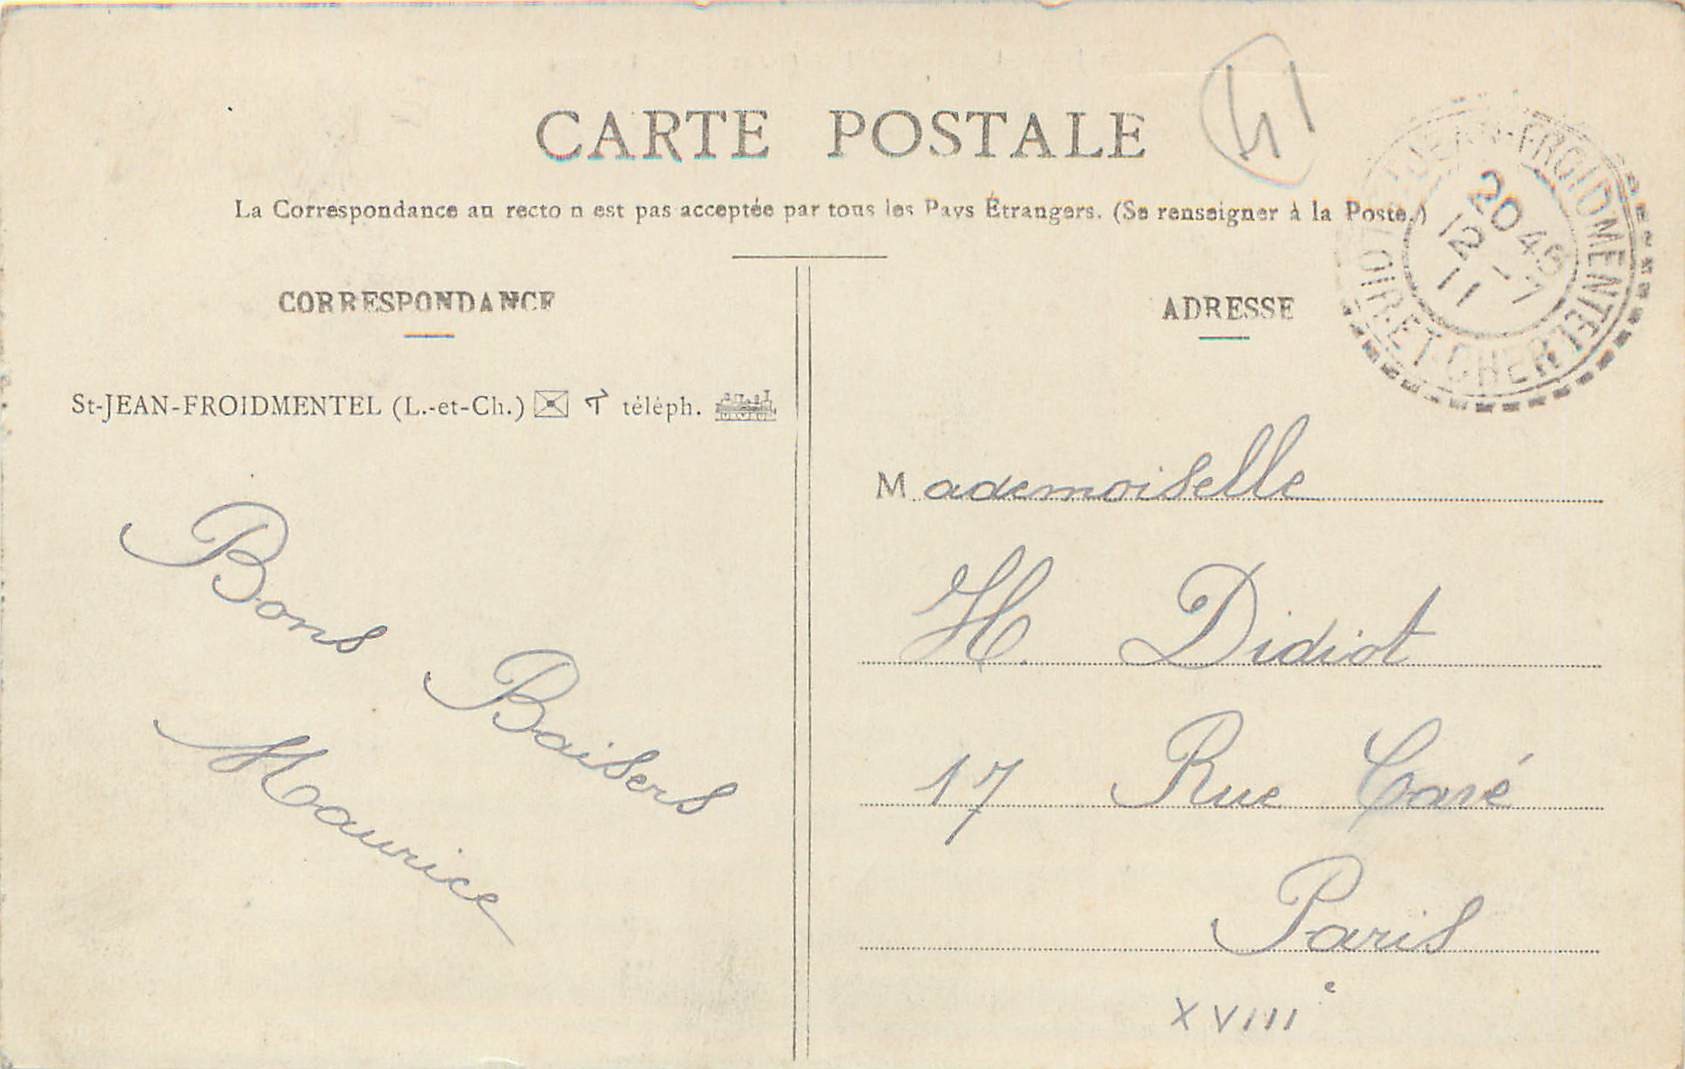 CARTE POSTALE
41
La Correspondance au recto n est pas acceptée par tous les Pays Étrangers. (Se renseigner à la Poste.)
CORRESPONDANCE
St-JEAN-FROIDMENTEL (L.-et-Ch.) téléph.
Bons Baisers
Maurice
ADRESSE
ST JEAN-FROIDMENTEL
LOIR-ET-CHER
20 45
12 - 7
11
Mademoiselle
H. Didiot
17 Rue Cavé
Paris
XVIIIe